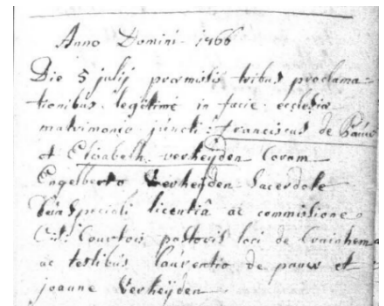 Anno Domini 1766
Die 5 julij præmissis tribus proclama-
tionibus legitime in facie ecclesiæ
matrimonio juncti: franciscus de Pauw
et Elisabeth verheyden Coram
Engelberto Verheyden Sacerdote
speciali licentiâ ac commissione
Courtois pastoris loci de
ac testibus laurentio de pauw et
joanne Verheyden